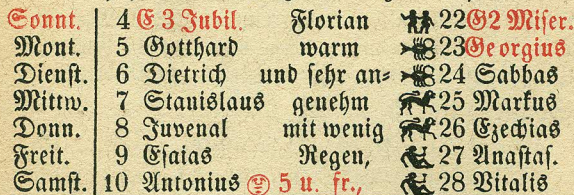 Sonnt. 4 E 3 Jubil. Florian 22 G2 Miser.
Mont. 5 Gotthard warm 23 Georgius
Dienst. 6 Dietrich und sehr an= 24 Sabbas
Mittw. 7 Stanislaus genehm 25 Markus
Donn. 8 Juvenal mit wenig 26 Ezechias
Freit. 9 Esaias Regen, 27 Anastas.
Samst. 10 Antonius 5 u. fr., 28 Vitalis